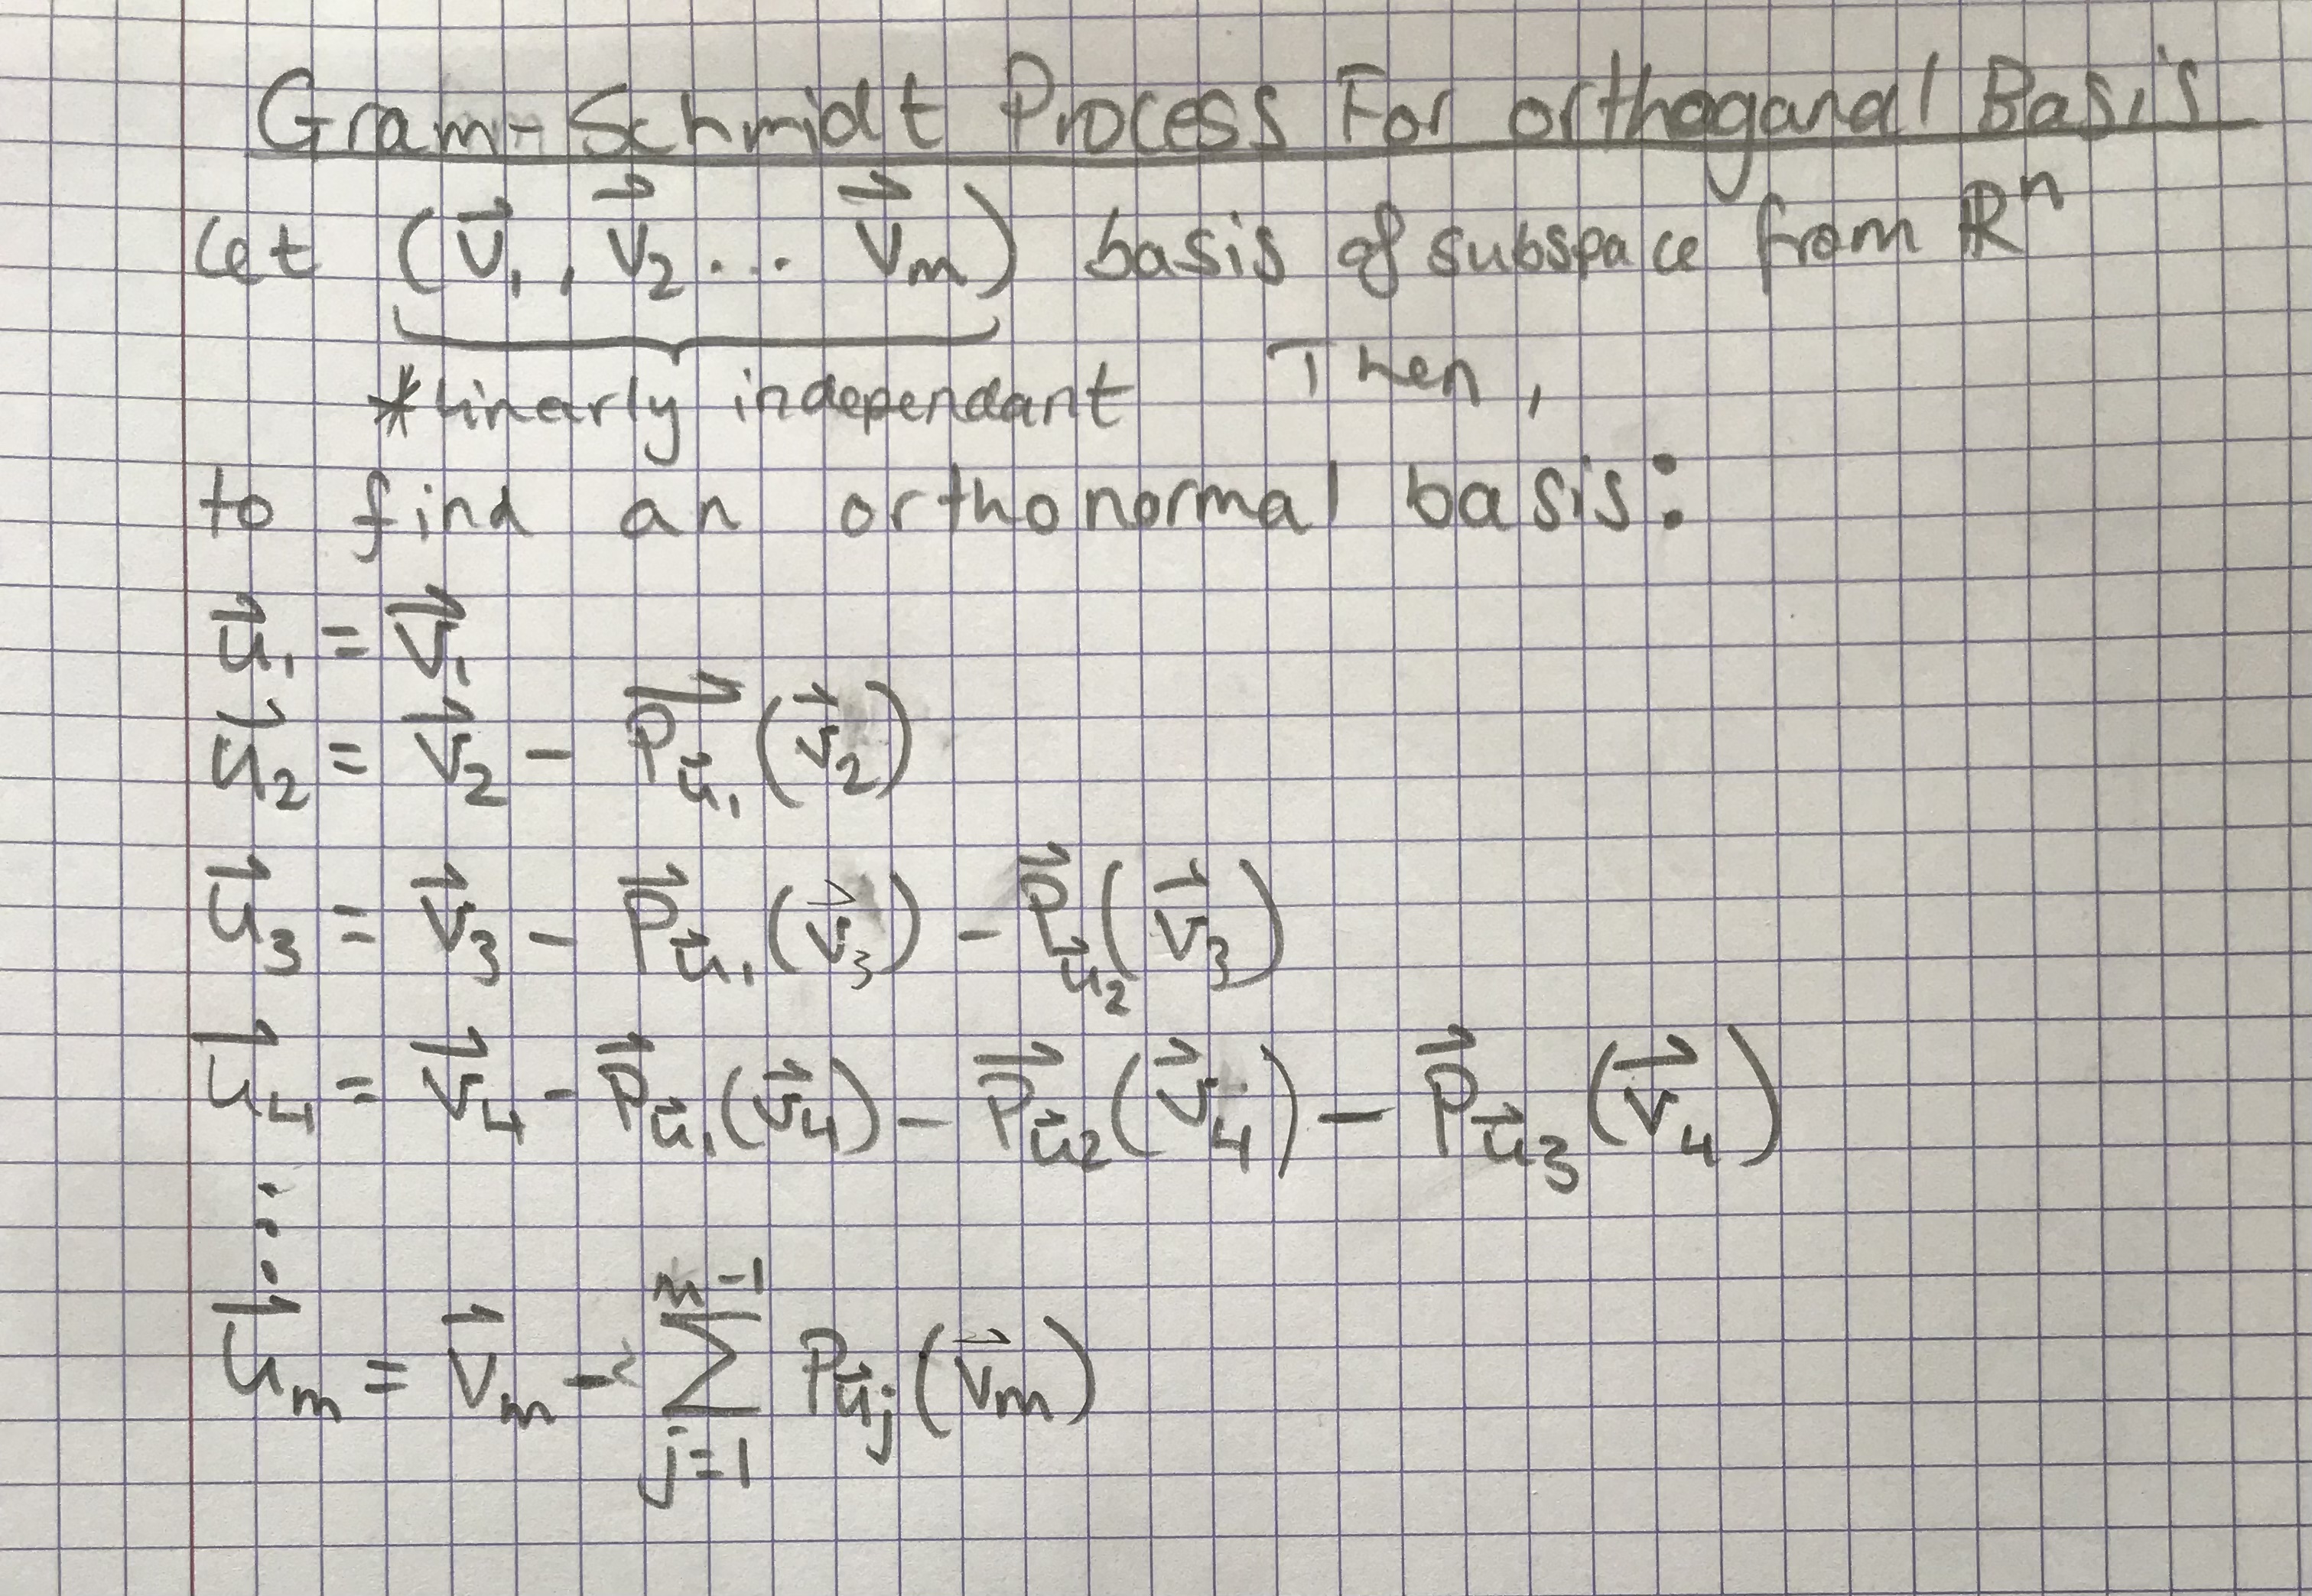 Gram-Schmidt Process For orthoganal Basis
let (v⃗₁, v⃗₂ ... v⃗ₘ) basis of subspace from ℝⁿ
*linearly independant Then,
to find an orthonormal basis:
u⃗₁ = v⃗₁
u⃗₂ = v⃗₂ - P⃗_u⃗₁(v⃗₂)
u⃗₃ = v⃗₃ - P⃗_u⃗₁(v⃗₃) - P⃗_u⃗₂(v⃗₃)
u⃗₄ = v⃗₄ - P⃗_u⃗₁(v⃗₄) - P⃗_u⃗₂(v⃗₄) - P⃗_u⃗₃(v⃗₄)
⋮
u⃗ₘ = v⃗ₘ - ∑_{j=1}^{n-1} P_u⃗ⱼ(v⃗ₘ)